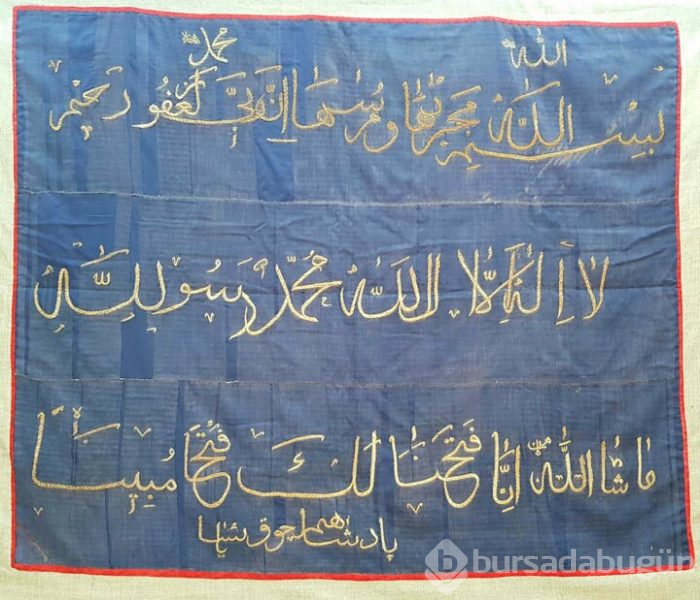 الله محمد
بِسْمِ اللهِ مجريها ومرسها اِنَّ رَبّى لَغفور رحيم
لا اِلٰهَ اِلَّا اللهُ مُحَمَّدٌ رَسُولُ اللهِ
ما شا الله اِنَّا فَتَحْنَا لَكَ فَتْحًا مُبِينًا
پادشاهم چوق یشا
bursadabugün